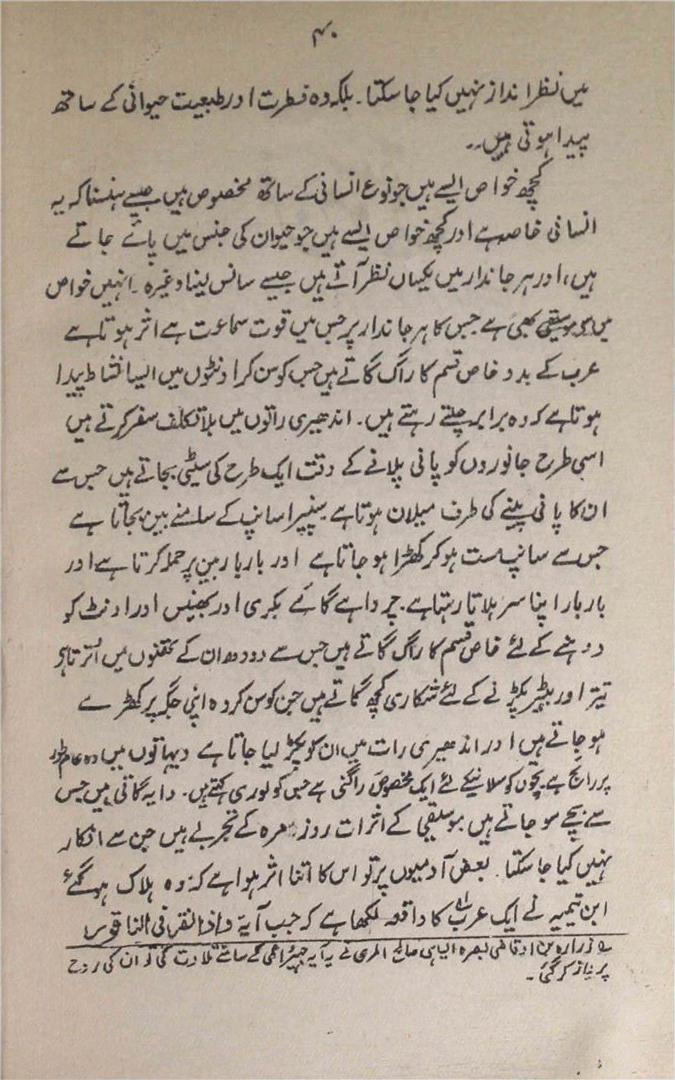 ۴۰
میں نظر انداز نہیں کیا جا سکتا۔ بلکہ وہ فطرت اور طبیعت حیوانی کے ساتھ
پیدا ہوتی ہیں۔۔
کچھ خواص ایسے ہیں جو نوع انسانی کے ساتھ مخصوص ہیں جیسے ہنسنا کہ یہ
انسانی خاصہ ہے اور کچھ خواص ایسے ہیں جو حیوان کی جنس میں پائے جاتے
ہیں، اور ہر جاندار میں یکساں نظر آتے ہیں جیسے سانس لینا وغیرہ۔ انہیں خواص
میں موسیقی بھی ہے جس کا ہر جاندار پر جس میں قوت سماعت ہے اثر ہوتا ہے
عرب کے بدو خاص قسم کا راگ گاتے ہیں جس کو سن کر اونٹوں میں ایسا نشاط پیدا
ہوتا ہے کہ وہ برابر چلتے رہتے ہیں۔ اندھیری راتوں میں بلا تکلف سفر کرتے ہیں
اسی طرح جانوروں کو پانی پلانے کے وقت ایک طرح کی سیٹی بجاتے ہیں جس سے
ان کا پانی پینے کی طرف میلان ہوتا ہے سنپیرا سانپ کے سامنے بین بجاتا ہے
جس سے سانپ مست ہو کر کھڑا ہو جاتا ہے اور بار بار بین پر حملہ کرتا ہے اور
بار بار اپنا سر ہلاتا رہتا ہے۔ چرواہے گائے بکری اور بھینس اور اونٹ کو
دوہنے کے لئے خاص قسم کا راگ گاتے ہیں جس سے دودھ ان کے تھنوں میں اتر تا ہی
تیتر اور بٹیر پکڑنے کے لئے شکاری کچھ گاتے ہیں جن کو سن کر وہ اپنی جگہ پر کھڑے
ہو جاتے ہیں اور اندھیری رات میں ان کو پکڑ لیا جاتا ہے دیہاتوں میں وہ عام طور
پر رائج ہے بچوں کو سلانیکے لئے ایک مخصوص راگنی ہے جس کو لوری کہتے ہیں۔ دایہ گاتی ہیں جس
سے بچے سو جاتے ہیں موسیقی کے اثرات روزمرہ کے تجربے ہیں جن سے انکار
نہیں کیا جا سکتا۔ بعض آدمیوں پر تو اس کا اتنا اثر ہوا ہے کہ وہ ہلاک ہو گئے
ابن تیمیہ نے ایک عرب کا واقعہ لکھا ہے کہ جب آیۃ واذا النقر فی الناقور
زرارہ بن اوقاضی بصرہ ایسا ہی صالح المری نے یہ آیہ جہیر اعمی کے سامنے تلاوت کی تو ان کی روح
پرواز کر گئی۔